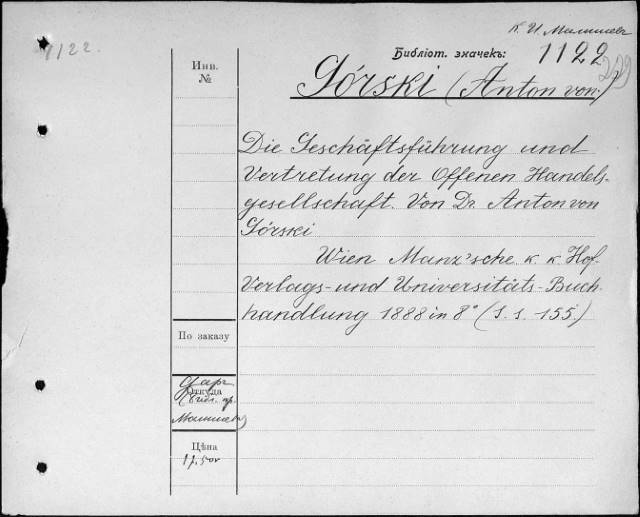 1122.
К. И. Малышев
Библіот. значекъ: 1122
229
Инв.
№
Górski (Anton von)
Die Geschäftsführung und
Vertretung der Offenen Handels-
gesellschaft. Von Dr. Anton von
Górski
Wien Manz'sche k. k. Hof
Verlags- und Universitäts-Buch
handlung 1888 in 8° (S. s. 155.)
По заказу
Даръ
Откуда
(библ. пр.
Малышева)
Цѣна